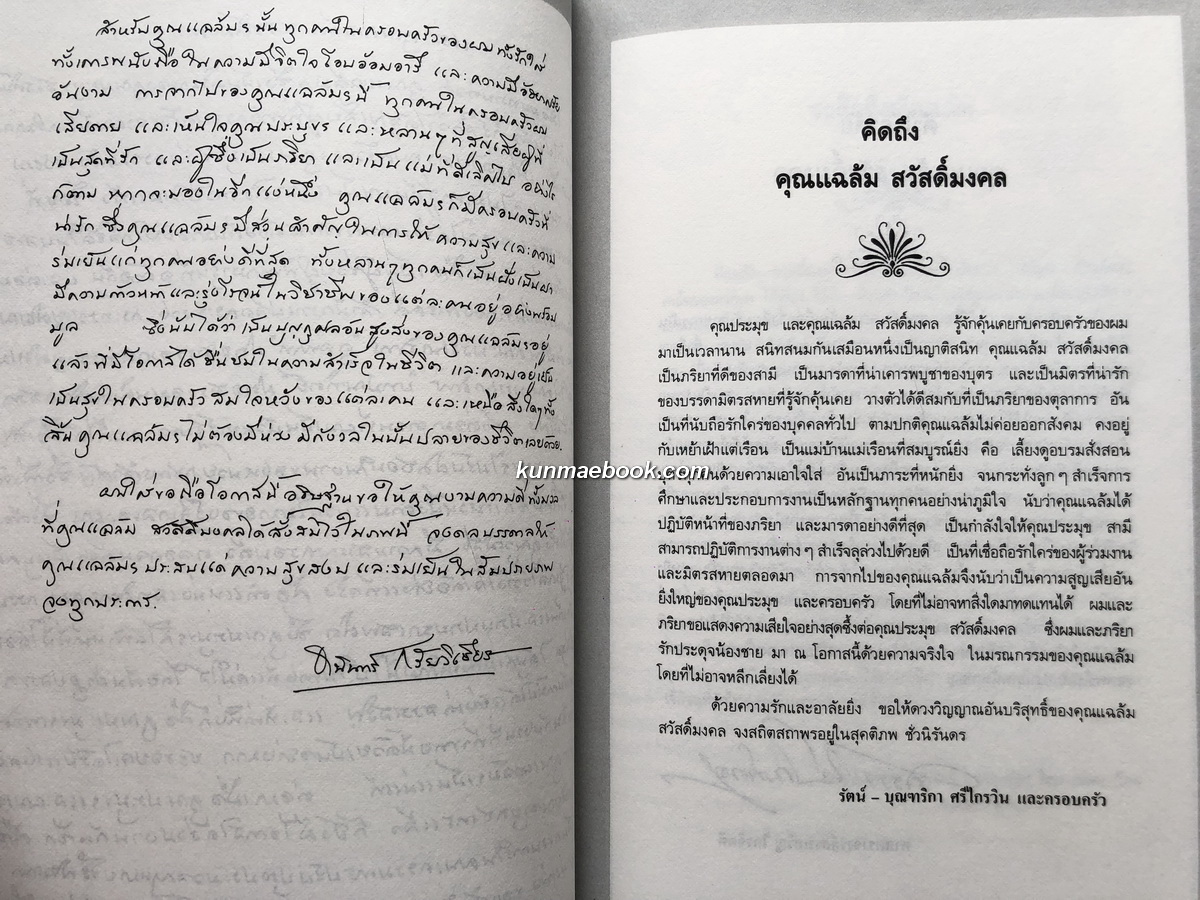 สำหรับคุณแฉล้มฯ นั้น ทุกคนในครอบครัวของผม ทั้งรักใคร่
ทั้งเคารพนับถือ ในความมีจิตใจโอบอ้อมอารี และความมีอัธยาศัย
อันงาม การจากไปของคุณแฉล้มฯ นี้ ทุกคนในครอบครัวผม
เสียดาย และเห็นใจคุณประมุขฯ และหลานๆ ที่สูญเสียผู้ที่
เป็นสุดที่รัก และผู้ซึ่งเป็นภริยา และเป็นแม่ที่ดีเลิศไป อย่างไร
ก็ตาม หากจะมองในอีกแง่หนึ่ง คุณแฉล้มฯ ก็มีครอบครัวที่
น่ารัก ซึ่งคุณแฉล้มฯ มีส่วนสำคัญในการให้ความสุขและความ
ร่มเย็นแก่ทุกคนอย่างดีที่สุด ทั้งหลานๆ ทุกคนก็เป็นฝั่งเป็นฝา
มีความก้าวหน้าและรุ่งโรจน์ในวิชาชีพของแต่ละคนอยู่อย่างพร้อม
มูล ซึ่งนับได้ว่าเป็นบุญกุศลอันสูงส่งของคุณแฉล้มฯ อยู่
แล้ว ที่มีโอกาสได้ชื่นชมในความสำเร็จในชีวิต และความอยู่เย็น
เป็นสุขในครอบครัวสมใจหวังของแต่ละคน และเหนือสิ่งใดๆ ทั้ง
สิ้น คุณแฉล้มฯ ไม่ต้องมีห่วง มีกังวลในบั้นปลายของชีวิตเลยด้วย.
ผมใคร่ขอถือโอกาสนี้ อธิษฐานขอให้คุณงามความดีทั้งมวล
ที่คุณแฉล้ม สวัสดิ์มงคลได้สั่งสมไว้ในภพนี้ จงดลบรรดาลให้
คุณแฉล้มฯ ประสบแต่ความสุขสงบ และร่มเย็นในสัมปรายภพ
จงทุกประการ.
kunmaebook.com
คิดถึง
คุณแฉล้ม สวัสดิ์มงคล
คุณประมุข และคุณแฉล้ม สวัสดิ์มงคล รู้จักคุ้นเคยกับครอบครัวของผม
มาเป็นเวลานาน สนิทสนมกันเสมือนหนึ่งเป็นญาติสนิท คุณแฉล้ม สวัสดิ์มงคล
เป็นภริยาที่ดีของสามี เป็นมารดาที่น่าเคารพบูชาของบุตร และเป็นมิตรที่น่ารัก
ของบรรดามิตรสหายที่รู้จักคุ้นเคย วางตัวได้ดีสมกับที่เป็นภริยาของตุลาการ อัน
เป็นที่นับถือรักใคร่ของบุคคลทั่วไป ตามปกติคุณแฉล้มไม่ค่อยออกสังคม คงอยู่
กับเหย้าเฝ้าแต่เรือน เป็นแม่บ้านแม่เรือนที่สมบูรณ์ยิ่ง คือ เลี้ยงดูอบรมสั่งสอน
บุตรทุกคนด้วยความเอาใจใส่ อันเป็นภาระที่หนักยิ่ง จนกระทั่งลูก ๆ สำเร็จการ
ศึกษาและประกอบการงานเป็นหลักฐานทุกคนอย่างน่าภูมิใจ นับว่าคุณแฉล้มได้
ปฏิบัติหน้าที่ของภริยา และมารดาอย่างดีที่สุด เป็นกำลังใจให้คุณประมุข สามี
สามารถปฏิบัติการงานต่าง ๆ สำเร็จลุล่วงไปด้วยดี เป็นที่เชื่อถือรักใคร่ของผู้ร่วมงาน
และมิตรสหายตลอดมา การจากไปของคุณแฉล้มจึงนับว่าเป็นความสูญเสียอัน
ยิ่งใหญ่ของคุณประมุข และครอบครัว โดยที่ไม่อาจหาสิ่งใดมาทดแทนได้ ผมและ
ภริยาขอแสดงความเสียใจอย่างสุดซึ้งต่อคุณประมุข สวัสดิ์มงคล ซึ่งผมและภริยา
รักประดุจน้องชาย มา ณ โอกาสนี้ด้วยความจริงใจ ในมรณกรรมของคุณแฉล้ม
โดยที่ไม่อาจหลีกเลี่ยงได้
ด้วยความรักและอาลัยยิ่ง ขอให้ดวงวิญญาณอันบริสุทธิ์ของคุณแฉล้ม
สวัสดิ์มงคล จงสถิตสถาพรอยู่ในสุคติภพ ชั่วนิรันดร
รัตน์ – บุณฑริกา ศรีไกรวิน และครอบครัว